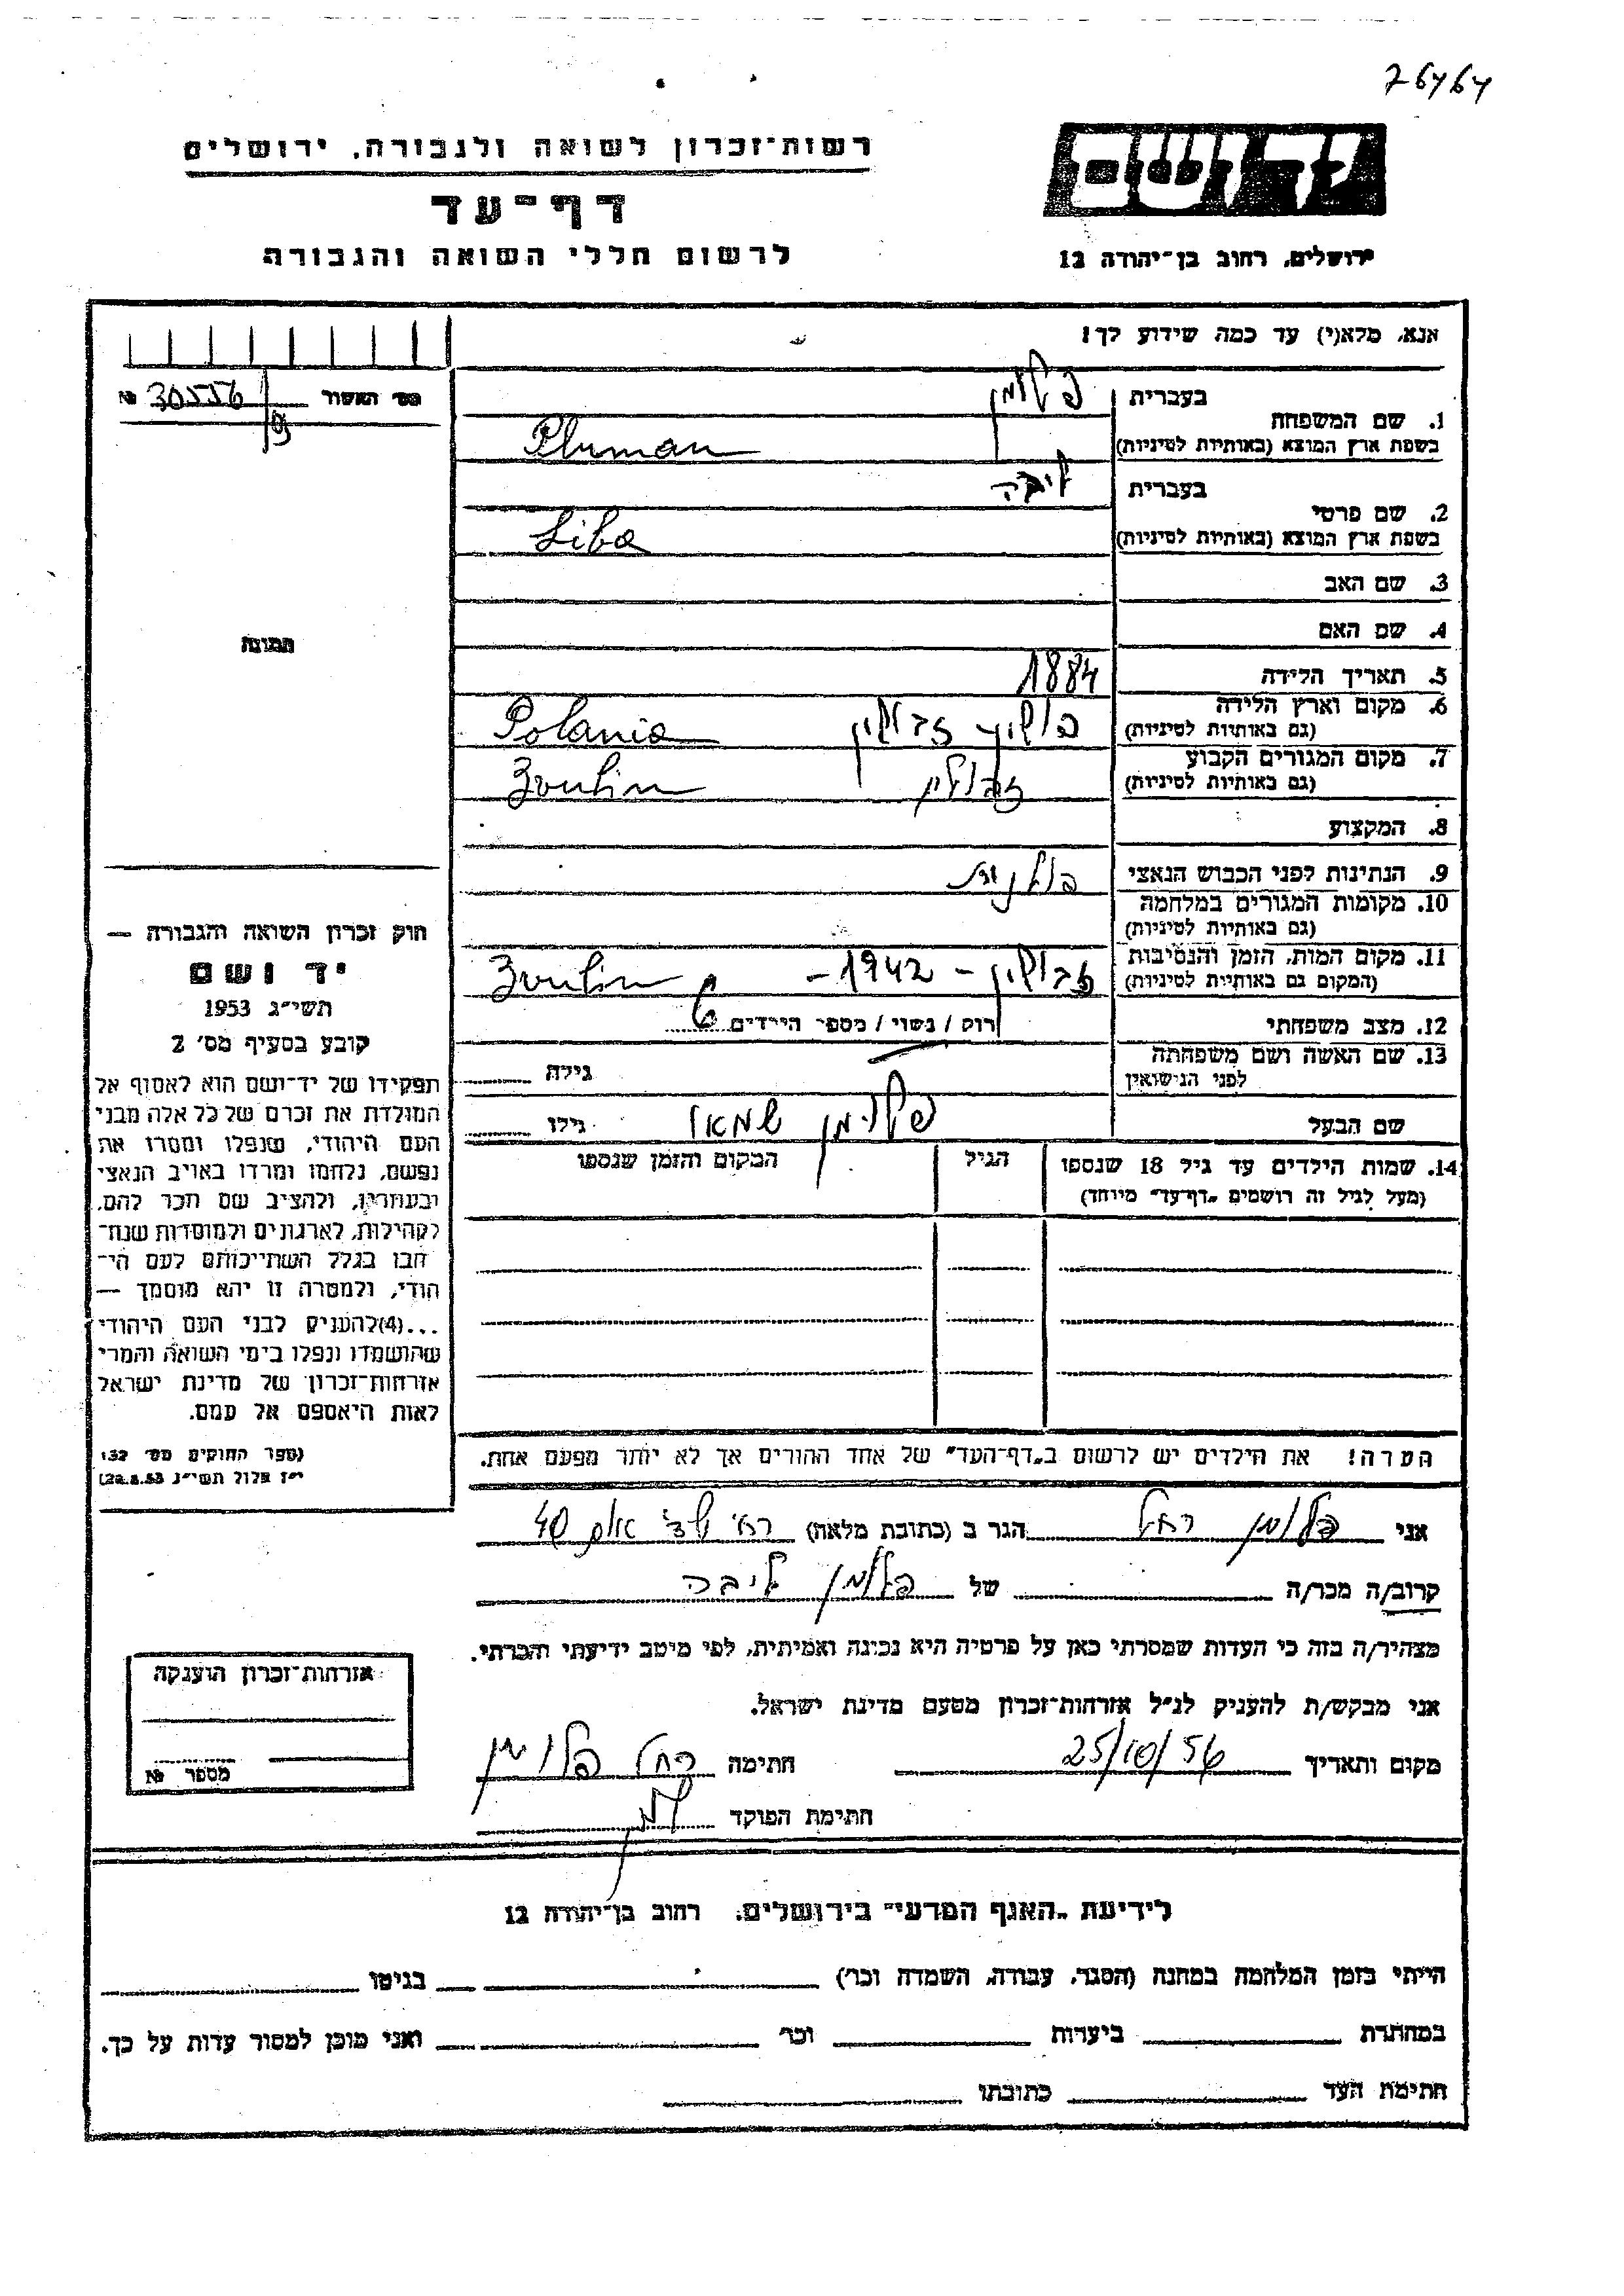 76464
יד ושם
ירושלים, רחוב בן־יהודה 12
רשות־זכרון לשואה ולגבורה, ירושלים
דף־עד
לרשום חללי השואה והגבורה
אנא, מלא(י) עד כמה שידוע לך!
מס׳ האשור № 30556/9
1. שם המשפחה
בעברית פלומן
בשפת ארץ המוצא (באותיות לטיניות) Pluman
2. שם פרטי
בעברית ליבה
בשפת ארץ המוצא (באותיות לטיניות) Liba
3. שם האב
4. שם האם
5. תאריך הלידה 1884
6. מקום וארץ הלידה
(גם באותיות לטיניות) Polania
7. מקום המגורים הקבוע
(גם באותיות לטיניות)
8. המקצוע
9. הנתינות לפני הכבוש הנאצי פולנית
10. מקומות המגורים במלחמה
(גם באותיות לטיניות)
11. מקום המות, הזמן והנסיבות
(המקום גם באותיות לטיניות) – 1942 –
12. מצב משפחתי רוק / נשוי / מספר הילדים 6
13. שם האשה ושם משפחתה
לפני הנישואין גילה
שם הבעל פלומן שמאל גילו
14. שמות הילדים עד גיל 18 שנספו
(מעל לגיל זה רושמים „דף־עד״ מיוחד)
הגיל
המקום והזמן שנספו
הערה! את הילדים יש לרשום ב„דף־העד״ של אחד ההורים אך לא יותר מפעם אחת.
תמונה
חוק זכרון השואה והגבורה —
יד ושם
תשי״ג 1953
קובע בסעיף מס׳ 2
תפקידו של יד־ושם הוא לאסוף אל
המולדת את זכרם של כל אלה מבני
העם היהודי, שנפלו ומסרו את
נפשם, נלחמו ומרדו באויב הנאצי
ובעוזריו, ולהציב שם וזכר להם,
לקהילות, לארגונים ולמוסדות שנח־
רבו בגלל השתייכותם לעם הי־
הודי, ולמטרה זו יהא מוסמך —
...(4)להעניק לבני העם היהודי
שהושמדו ונפלו בימי השואה והמרי
אזרחות־זכרון של מדינת ישראל
לאות היאספם אל עמם.
(ספר החוקים מס׳ 132
י״ז אלול תשי״ג 28.8.53)
אני פלומן רחל הגר ב (כתובת מלאה)
קרוב/ה מכר/ה של פלומן ליבה
מצהיר/ה בזה כי העדות שמסרתי כאן על פרטיה היא נכונה ואמיתית, לפי מיטב ידיעתי והכרתי.
אני מבקש/ת להעניק לנ״ל אזרחות־זכרון מטעם מדינת ישראל.
מקום ותאריך 25/10/56 חתימה רחל פלומן
חתימת הפוקד
אזרחות־זכרון הוענקה
מספר №
לידיעת „האגף המדעי״ בירושלים, רחוב בן־יהודה 12
הייתי בזמן המלחמה במחנה (הסגר, עבודה, השמדה וכו׳) בגיטו
במחתרת ביערות וכו׳ ואני מוכן למסור עדות על כך.
חתימת העד כתובתו